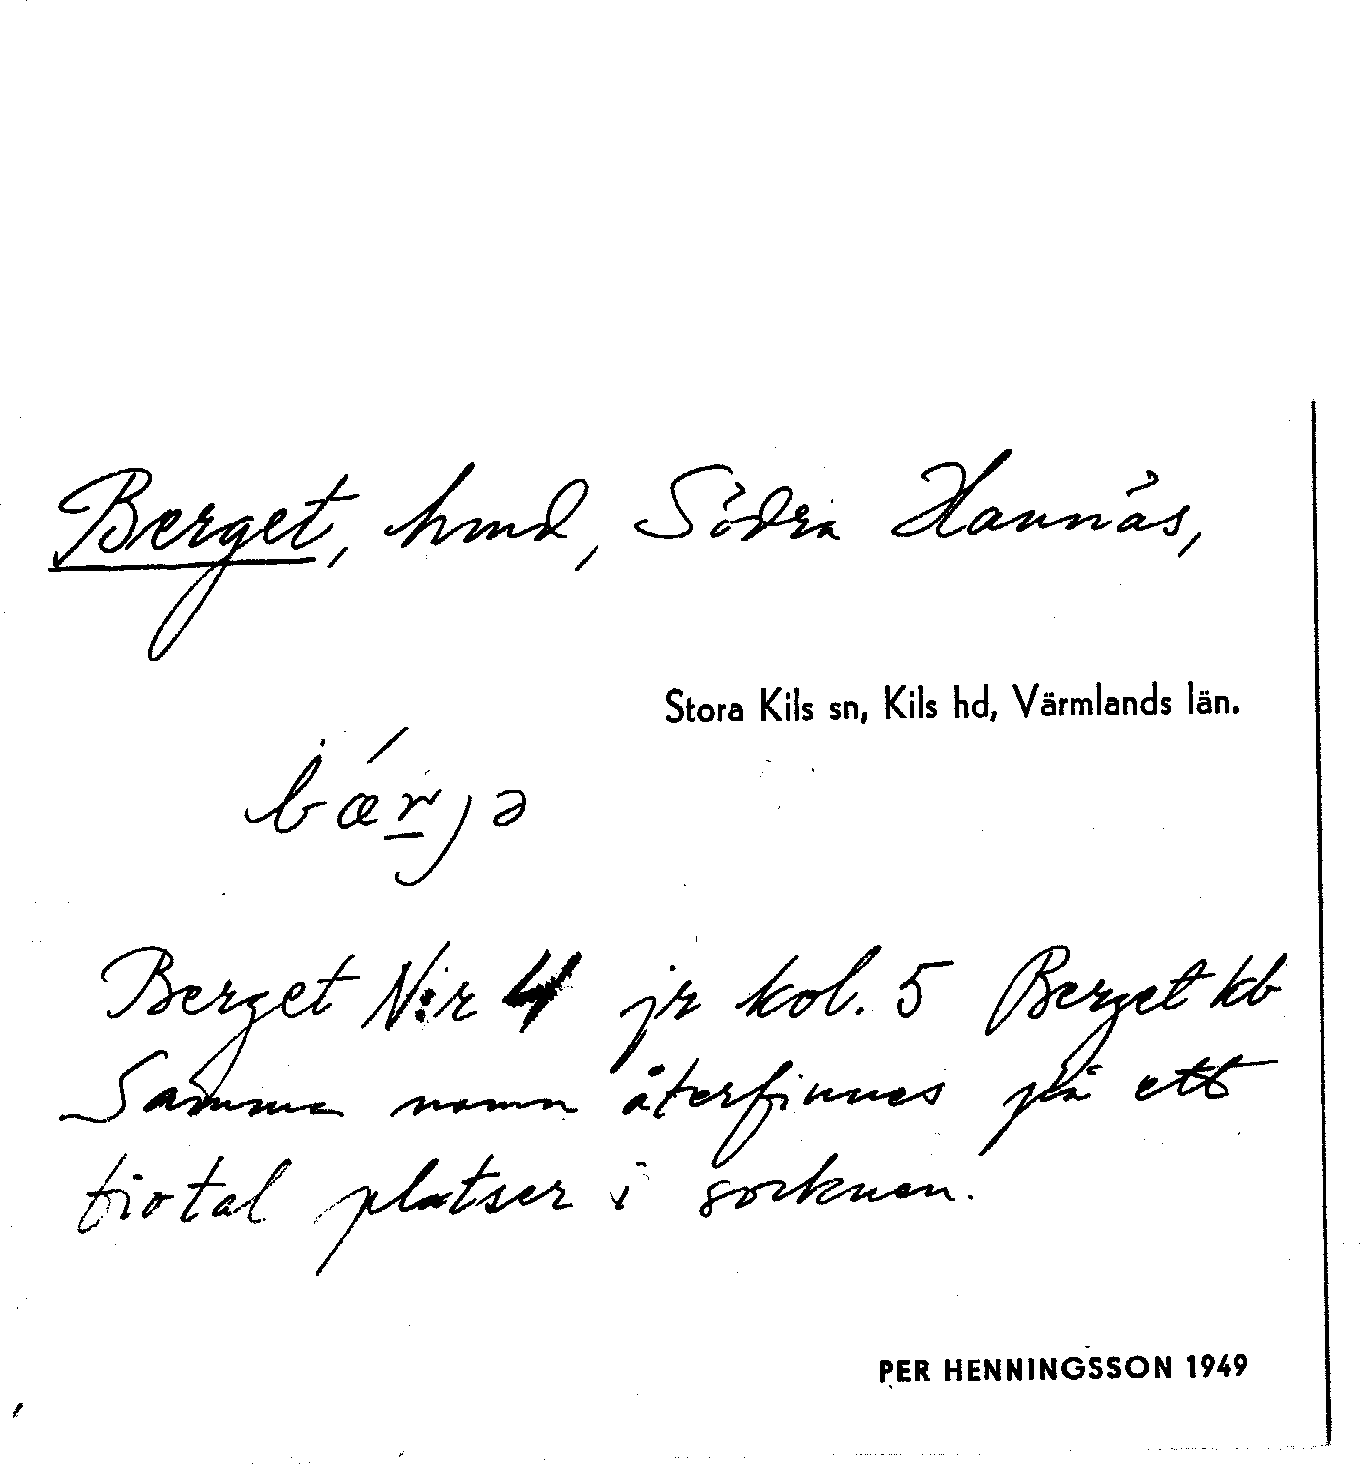 Berget, hmd, Södra Hannäs,
Stora Kils sn, Kils hd, Värmlands län.
bǽr̲jə
Berget N:r 4 jr kol. 5 Berget kb
Samma namn återfinnes på ett
tiotal platser i socknen.
PER HENNINGSSON 1949